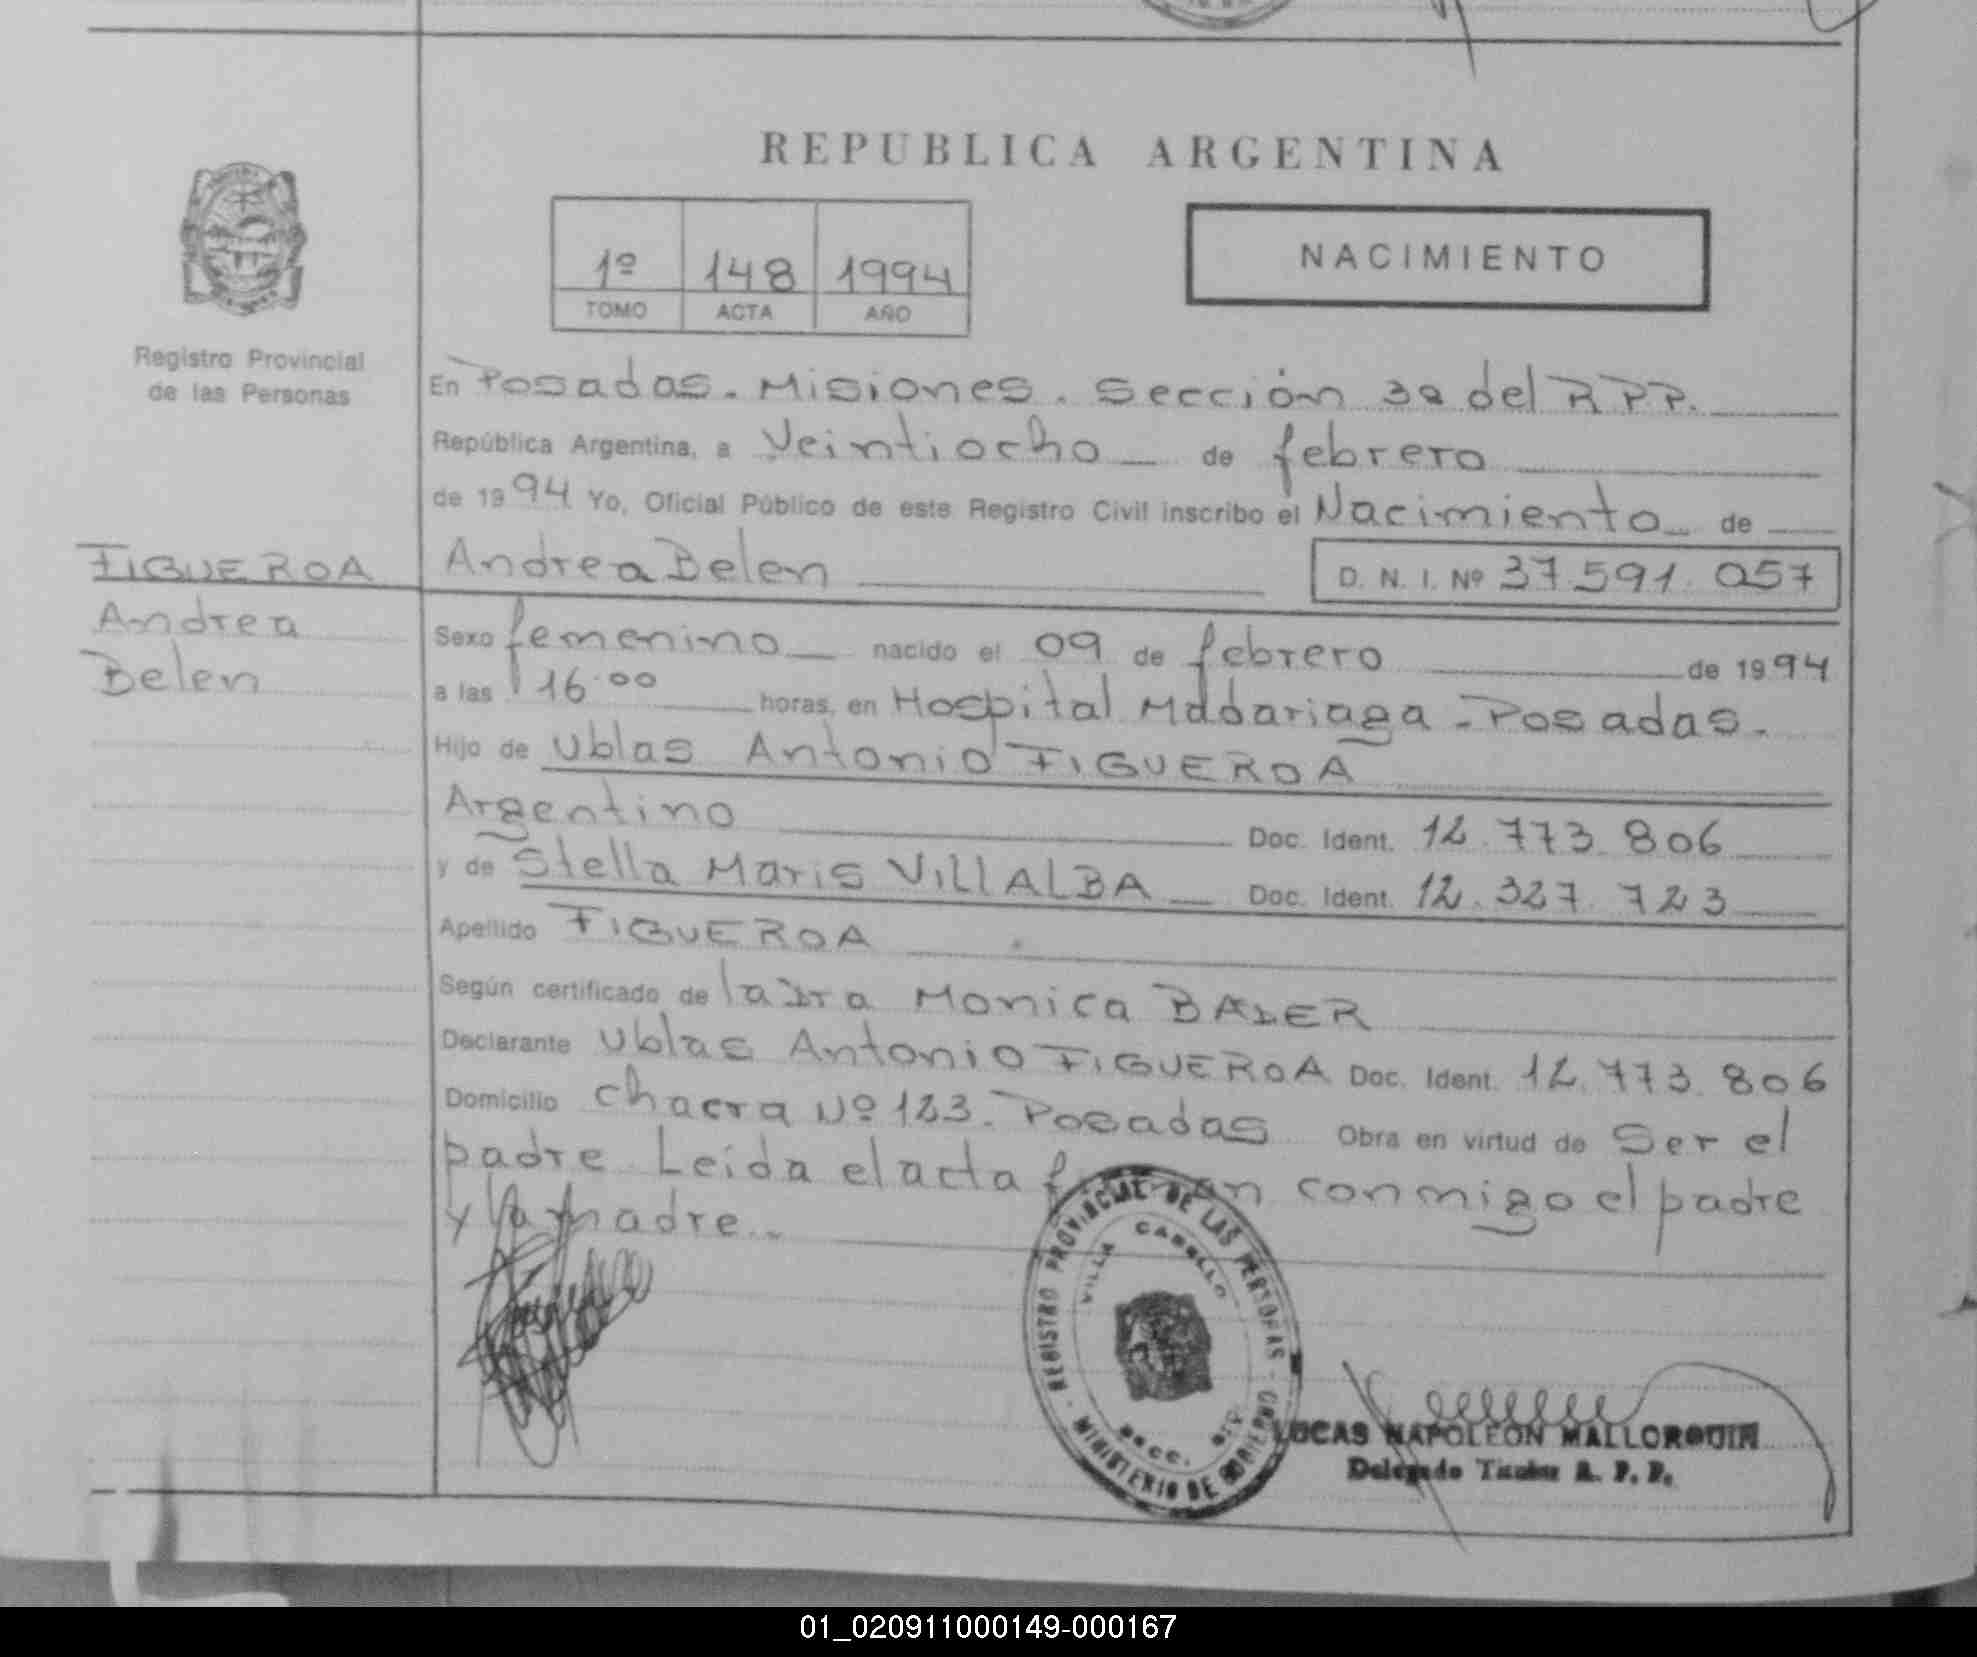 REPUBLICA ARGENTINA
1º 148 1994
TOMO ACTA AÑO
NACIMIENTO
Registro Provincial
de las Personas
En Posadas. Misiones. Sección 3a del R.P.P.
República Argentina, a Veintiocho de febrero
de 1994 Yo, Oficial Público de este Registro Civil inscribo el Nacimiento de
FIGUEROA
Andrea
Belen
Andrea Belen D. N. I. Nº 37.591.057
Sexo femenino nacido el 09 de febrero de 1994
a las 16.00 horas, en Hospital Madariaga - Posadas.
Hijo de Ublas Antonio FIGUEROA
Argentino Doc. Ident. 12.773.806
y de Stella Maris VILLALBA Doc. Ident. 12.327.723
Apellido FIGUEROA
Según certificado de la Dra Monica BADER
Declarante Ublas Antonio FIGUEROA Doc. Ident. 12.773.806
Domicilio Chacra Nº 123. Posadas Obra en virtud de Ser el
padre. Leida el acta firman conmigo el padre
y la madre..
REGISTRO PROVINCIAL DE LAS PERSONAS - MINISTERIO DE GOBIERNO
VILLA CABELLO
SECC.
LUCAS NAPOLEON MALLORQUIN
Delegado Titular R. P. P.
01_020911000149-000167